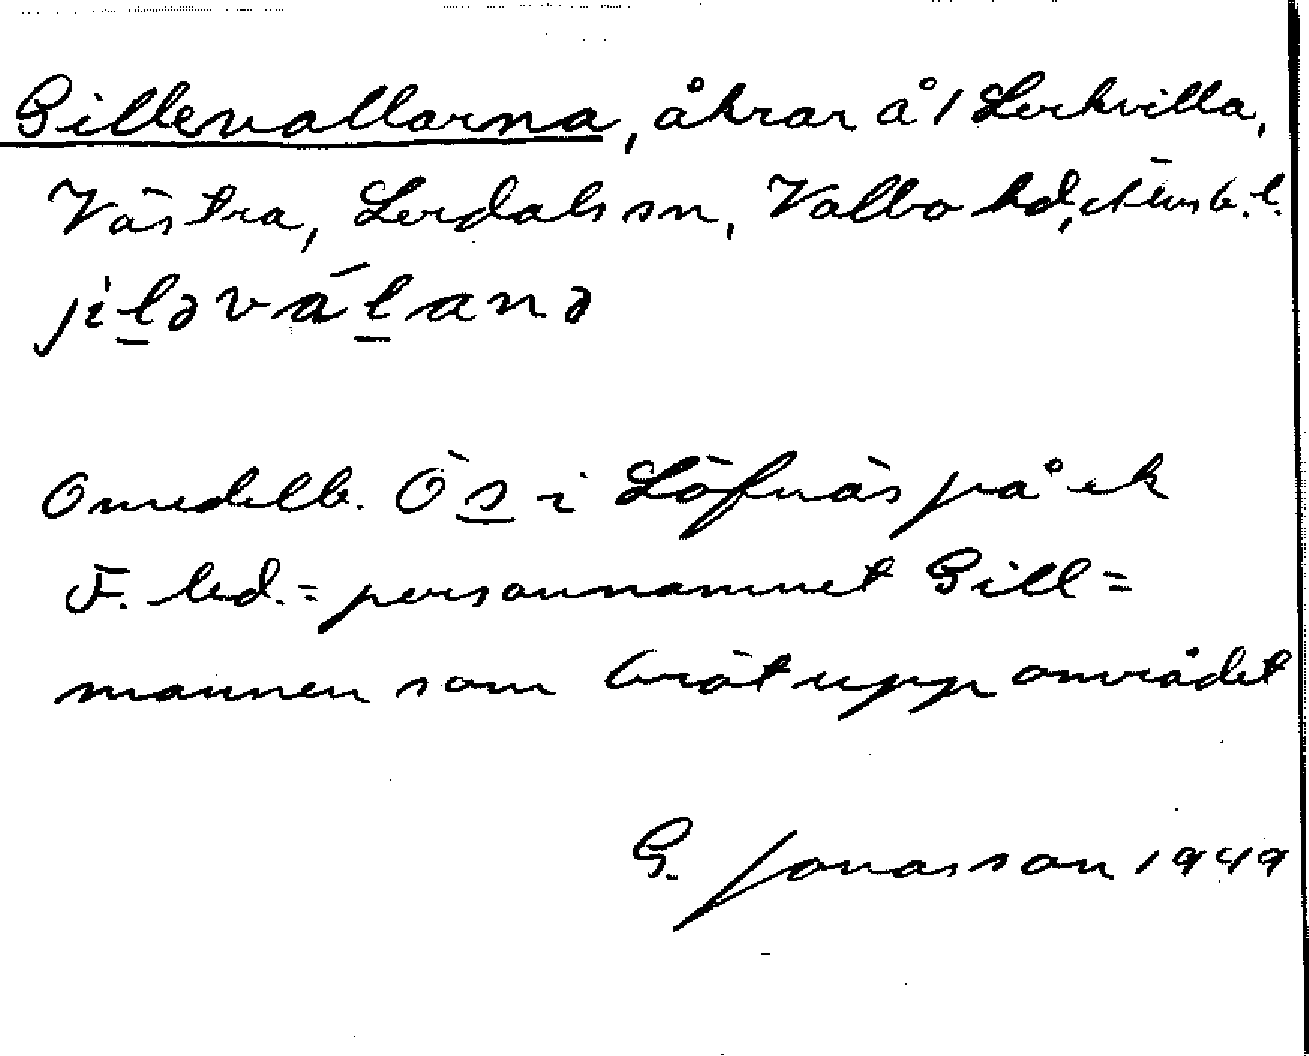 Gillevallarna, åkrar å 1 Lerkvilla,
Västra, Lerdals sn, Valbo hd, Älvsb. l.
jiləválanə
Omedelb. Ö s i Löfnäs på ek
F. led. = personnamnet Gill=
mannen som bröt upp området
G. Jonasson 1949